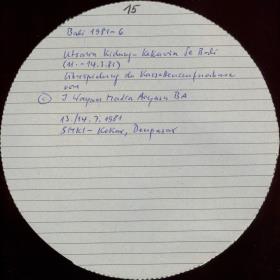 15
Bali 1981-6
Utsawa Kidung-Kekawin Se Bali
(11.-14.7.81)
Überspielung der Kassettenaufnahme
von
I Wayan Madra Aryasa BA
13./14.7.1981
SMKI-Kokar, Denpasar